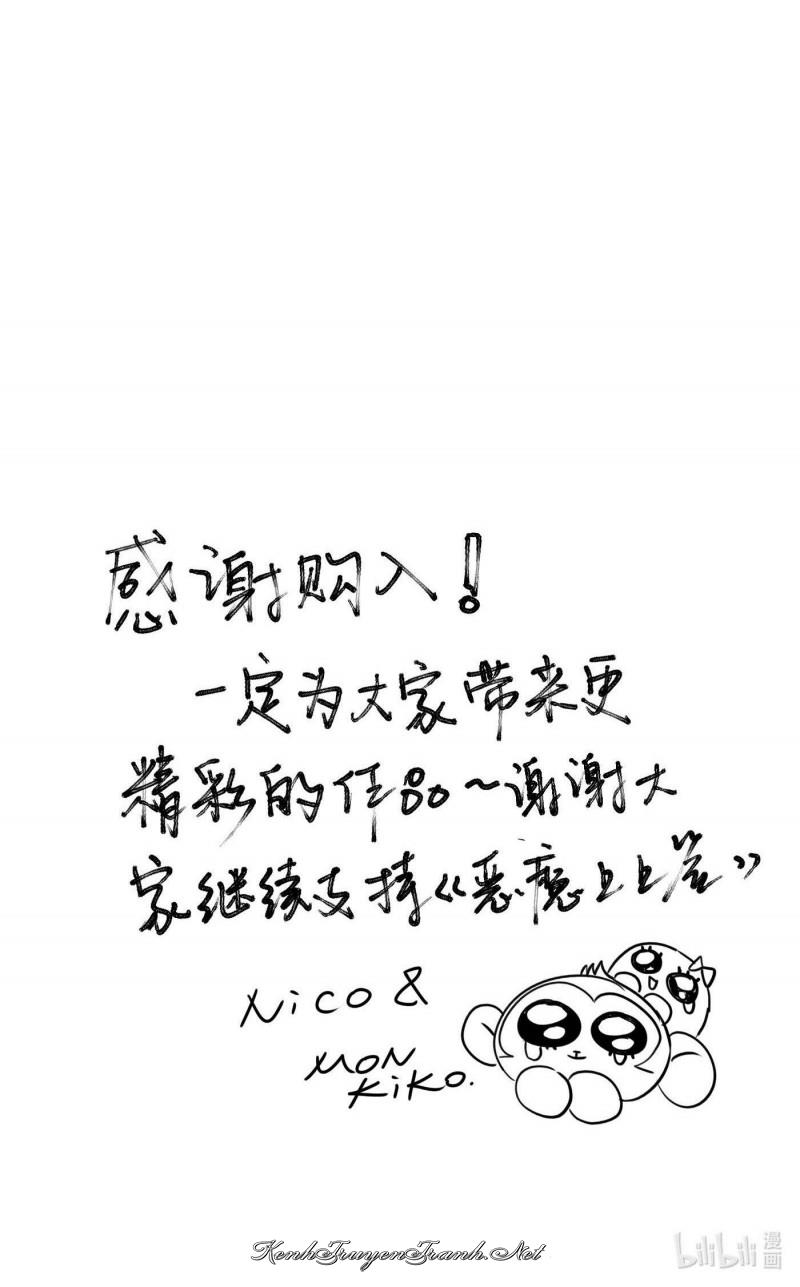 感谢购入!
一定为大家带来更
精彩的作品~谢谢大
家继续支持《恶魔上上签》
Nico &
MON
KiKO.
KenhTruyenTranh.Net
bilibili 漫画